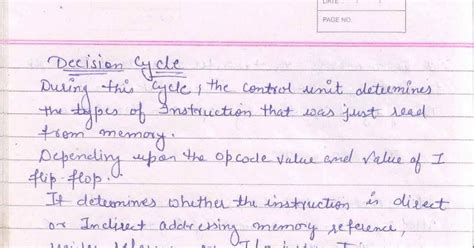 DATE
PAGE NO.
Decision Cycle
During this Cycle, the control unit determines
the types of Instruction that was just read
from memory.
Depending upon the opcode value and value of I
flip-flop.
It determines whether the instruction is direct
or Indirect addressing memory reference,